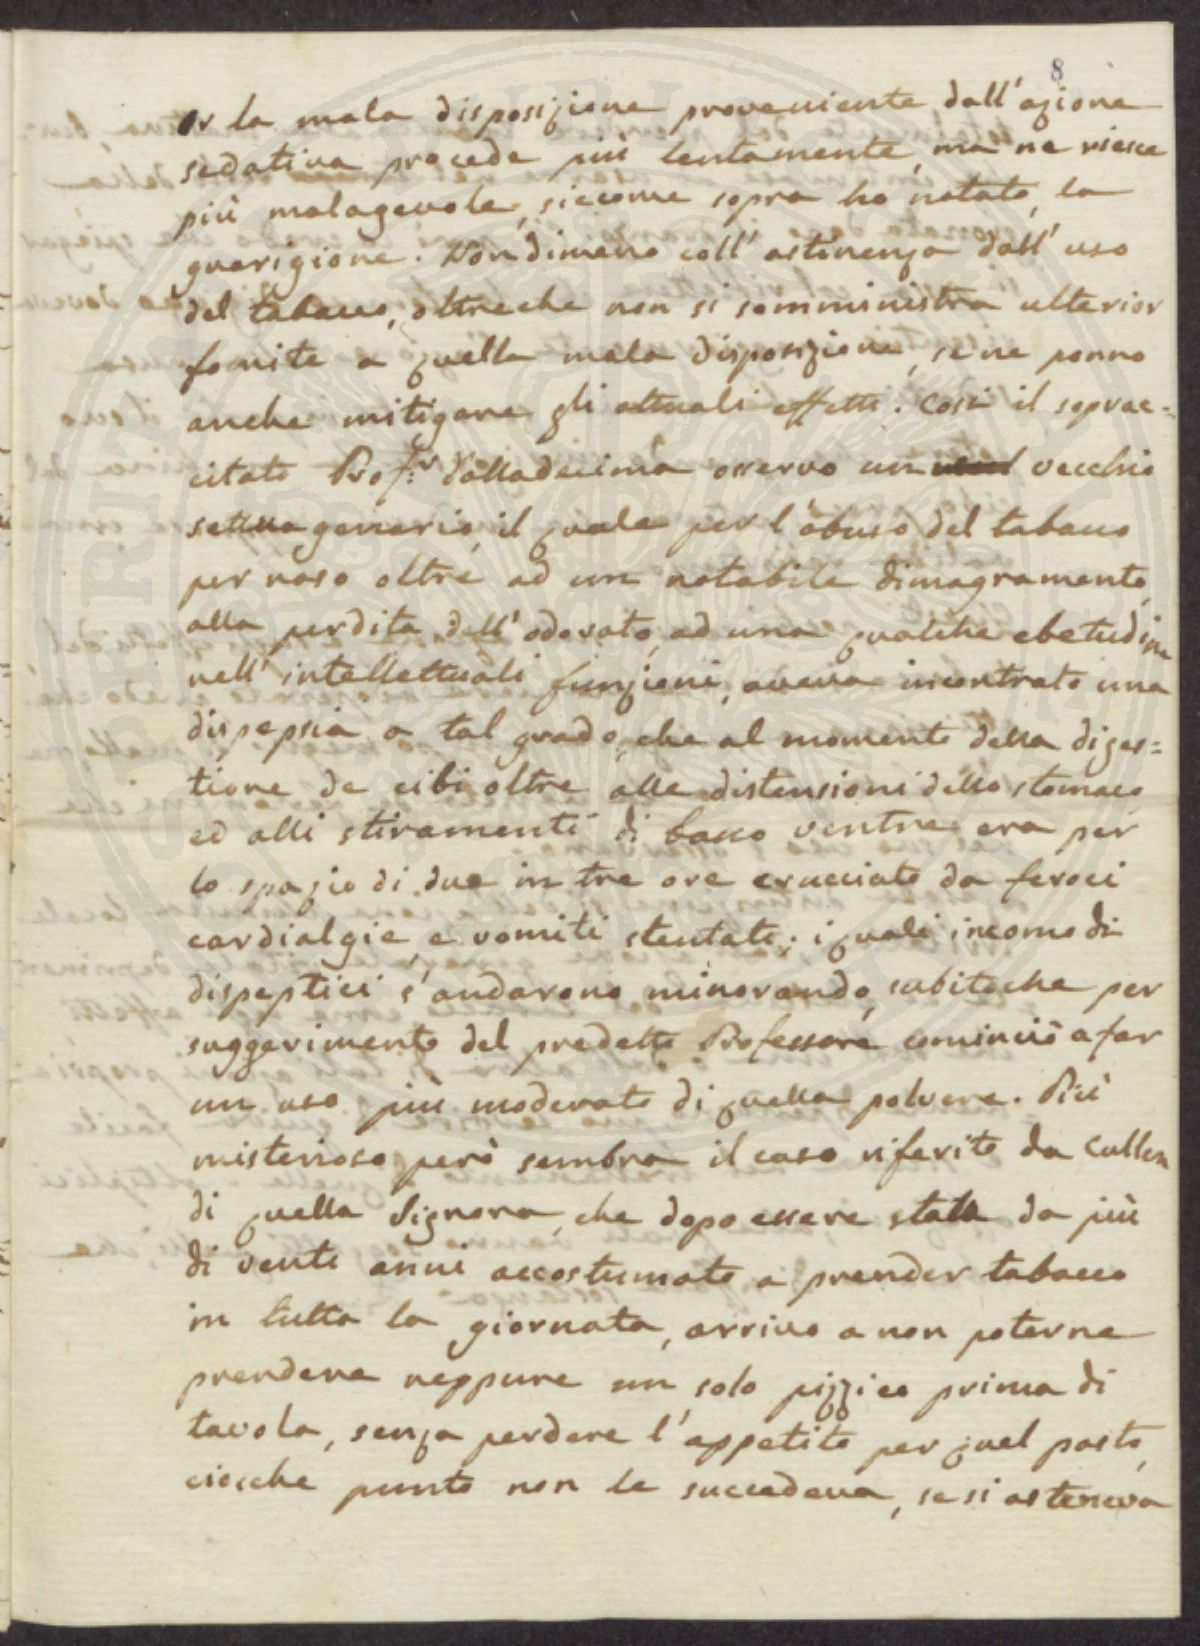 8
or la mala disposizione proveniente dall'azione
sedativa procede più lentamente, ma ne riesce
più malagevole, siccome sopra ho notato, la
guarigione. Nondimeno coll'astinenza dall'uso
del tabacco, oltreche non si somministra ulterior
fomite a quella mala disposizione, se ne ponno
anche mitigare gli attuali effetti. Così il soprac=
citato Prof.r Dalladecima osservo un vecchio
settuagenario, il quale per l'abuso del tabacco
per naso oltre ad un notabile dimagramento,
alla perdita dell'odorato, ad una qualche ebetudine
nell'intellettuali funzioni, aveva incontrato una
dispepsia a tal grado, che al momento della diges=
tione de cibi oltre alle distensioni dello stomaco
ed alli stiramenti di basso ventre era per
lo spazio di due in tre ore crucciato da feroci
cardialgie, e vomiti stentati; i quali incomodi
dispeptici s'andarono minorando, subitoche per
suggerimento del predetto Professore cominciò a far
un uso più moderato di quella polvere. Più
misterioso però sembra il caso riferito da Cullen
di quella Signora, che dopo essere stata da più
di venti anni accostumata a prender tabacco
in tutta la giornata, arrivo a non poterne
prendere neppure un solo pizzico prima di
tavola, senza perdere l'appetito per quel pasto,
ciocche punto non le succedeva, se si asteneva
STERITA